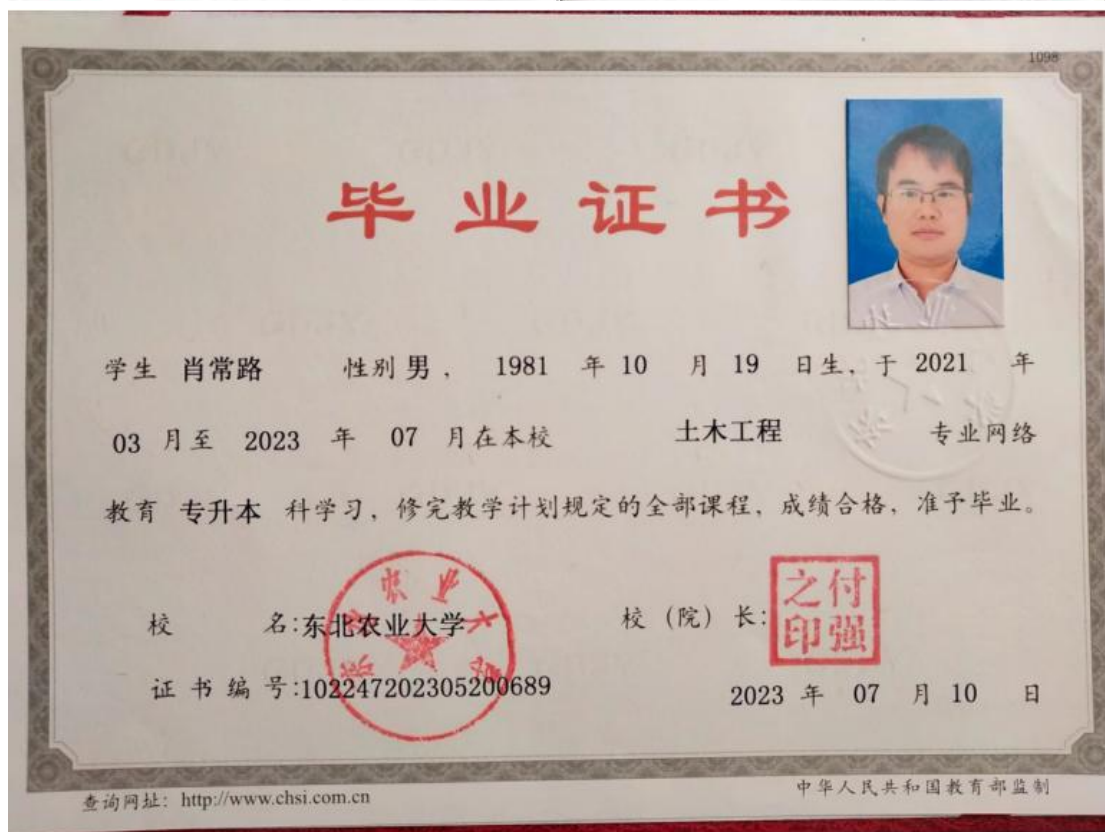 1098
毕业证书
学生 肖常路 性别 男 ， 1981 年 10 月 19 日生，于 2021 年
03 月至 2023 年 07 月在本校 土木工程 专业网络
教育 专升本 科学习，修完教学计划规定的全部课程，成绩合格，准予毕业。
校 名：东北农业大学 校（院）长：
东北农业大学
付强之印
证书编号：102247202305200689
2023 年 07 月 10 日
查询网址：http://www.chsi.com.cn 中华人民共和国教育部监制